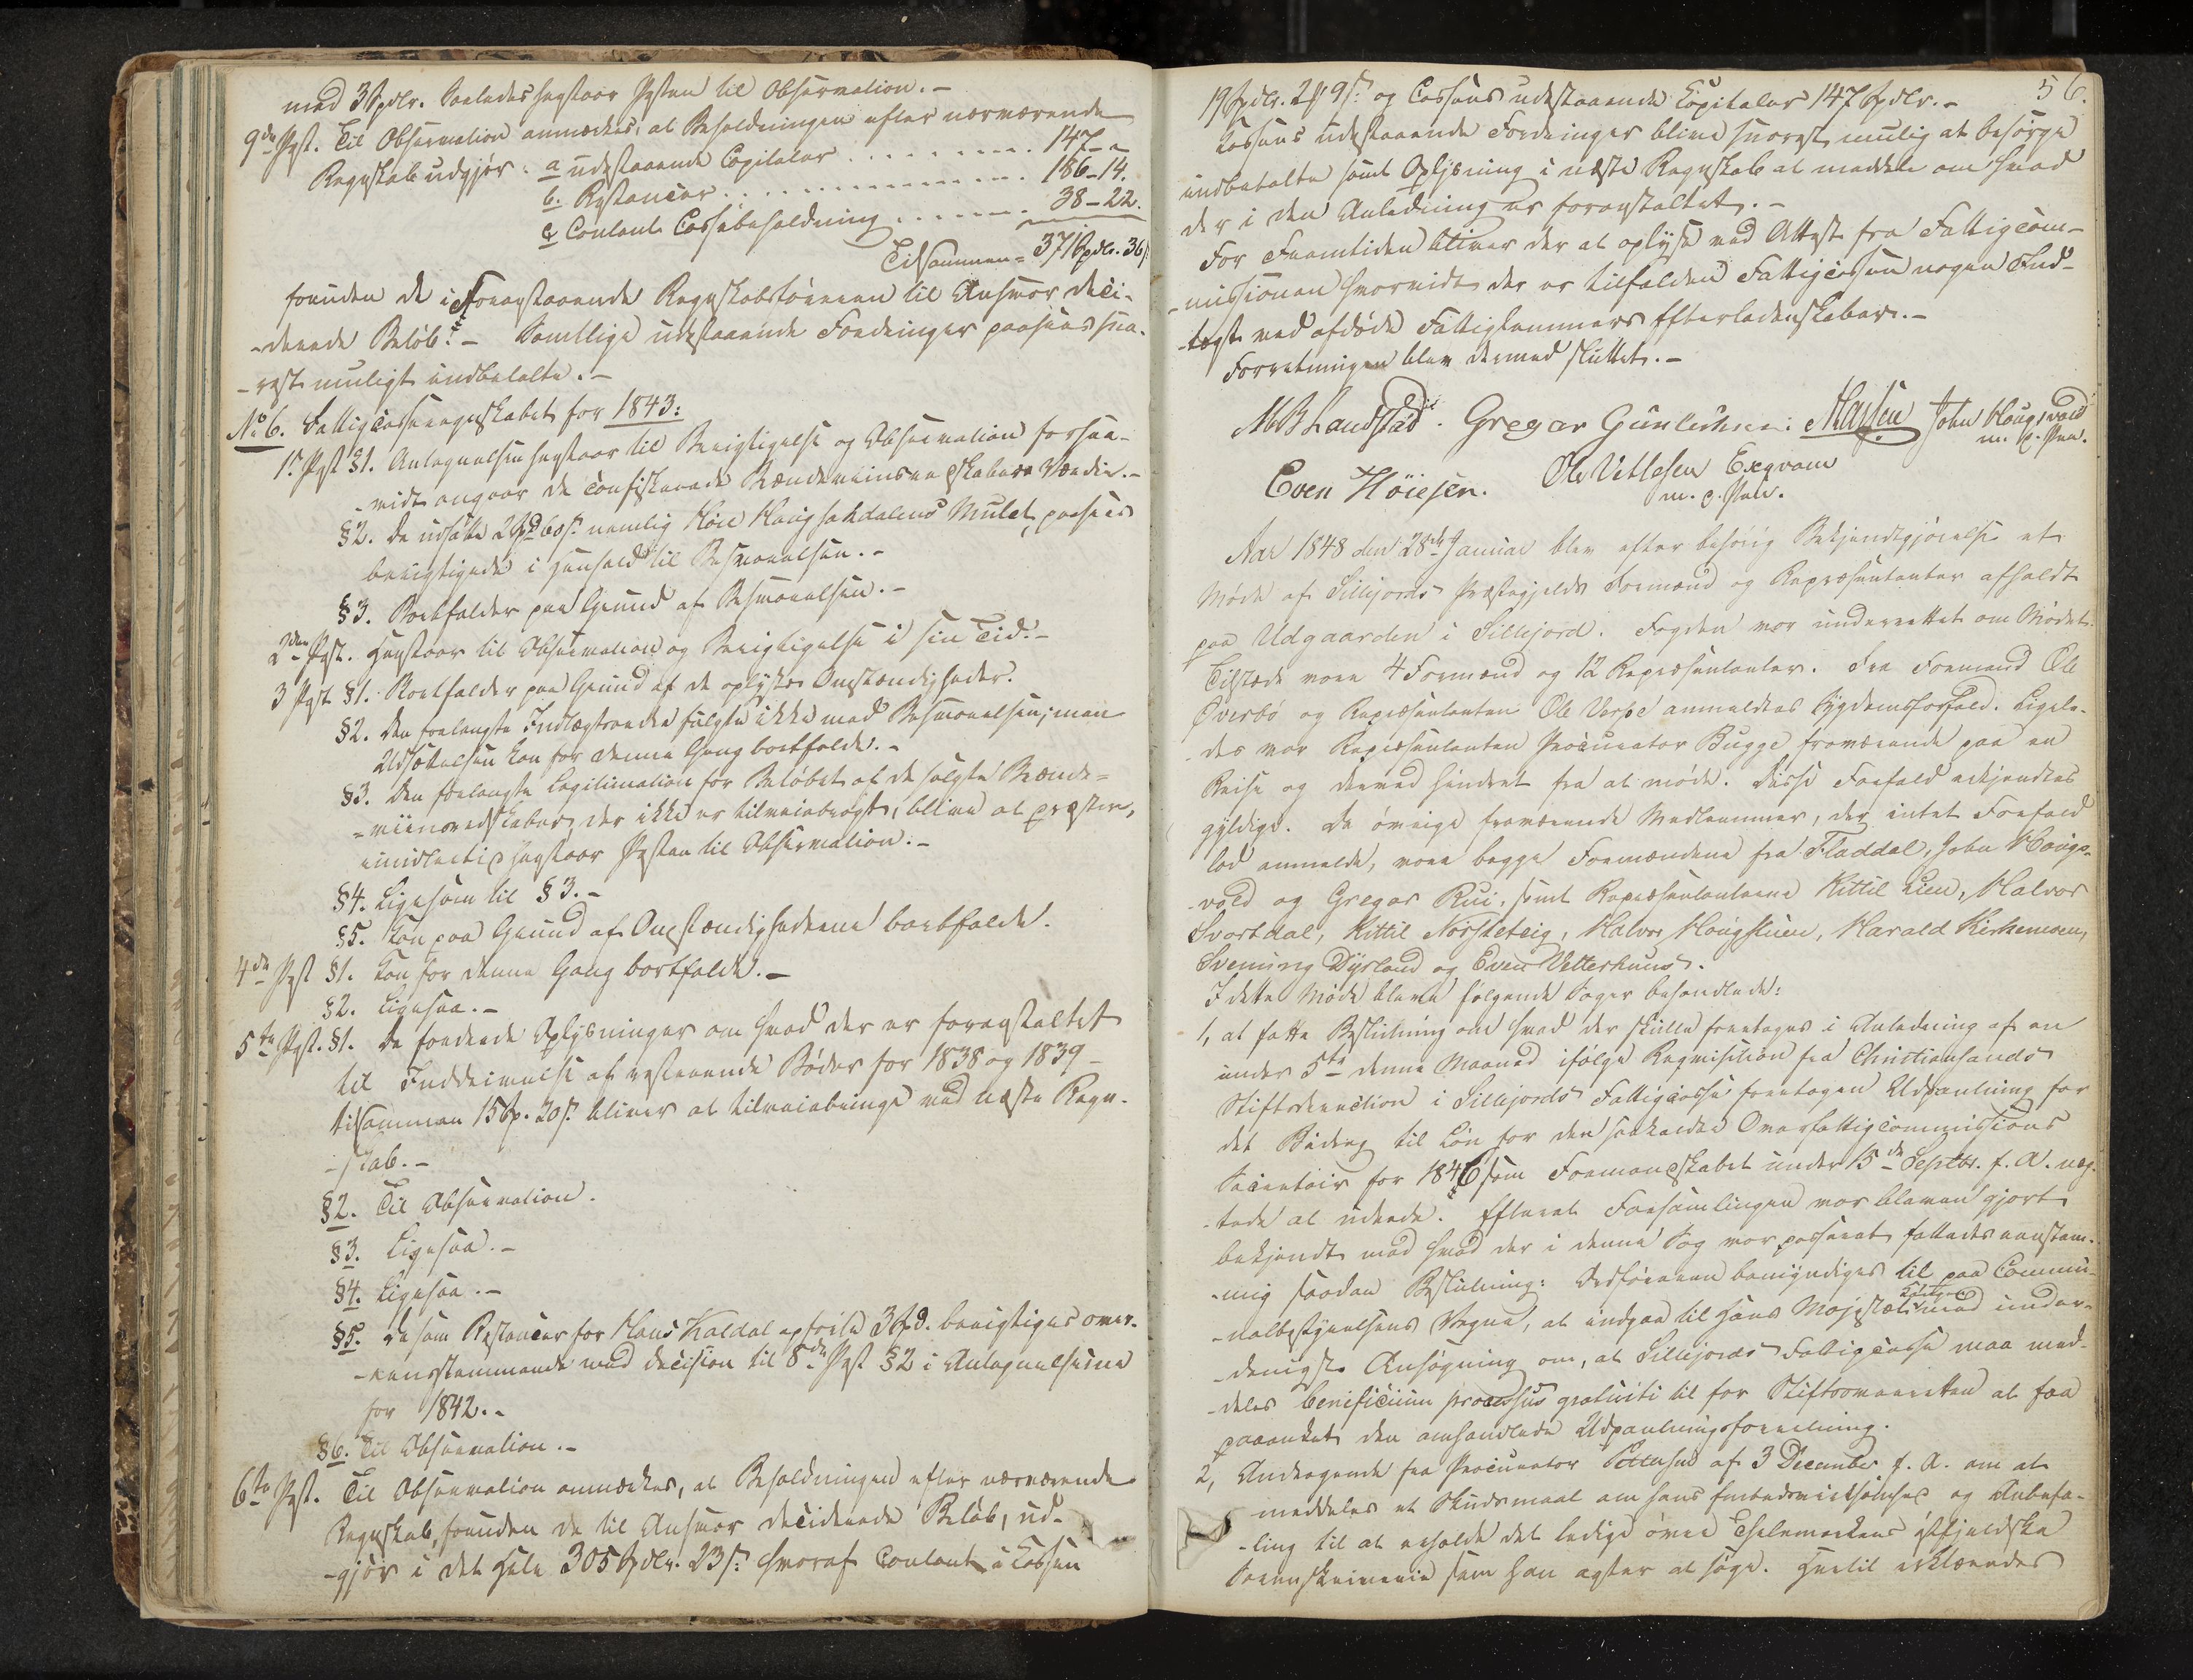 med 3 Spdlr. Saaledes henstaar Posten til Observation.-
9de Post. Til Observation anmærkes, at Beholdningen efter nærværende
Regnskab udgjør: a udestaaende Capitaler . . . . . . . . . 147 - "
b. Restancer . . . . . . . . . . . . . . . 186 - 14.
c Contant Cassabeholdning . . . . . . . 38 - 22.
Tilsammen = 371 Spdlr. 36 s
foruden de i Foranstaaende Regnskabsføreren til Ansvar deci-
-derede Beløb. - Samtlige udestaaende Fordringer paasees sna-
-rest muligt indbetalte.-
No 6. Fattigcasseregnskabet for 1843:
1ste Post §1. Antegnelsen henstaar til Berigtigelse og Observation forsaa-
-vidt angaar de confiskerede Brændeviinsredskabers Værdie.-
§2. De udsatte 2 Spd 60 s. nemlig Høie Haugsakdalens Mulct, paasees
berigtigede i Henhold til Besvarelsen.-
§3. Bortfalder paa Grund af Besvarelsen.-
2den Post. Henstaar til Observation og Berigtigelse i sin Tid.-
3 Post §1. Bortfalder paa Grund af de oplyste Omstændigheder.
§2. Den forlangte Indlægstrædte fulgte ikke med Besvarelsen; men
Udsættelsen kan for denne Gang bortfalde.-
§3. Den forlangte Legitimation for Beløbet af de solgte Brænde-
-viinsredskaber, der ikke er tilveiebragt, bliver at præstere,
imidlertid henstaar Posten til Observation.-
§4. Ligesom til §3.-
§5. Kan paa Grund af Omstændighederne bortfalde.
4de Post §1. Kan for denne Gang bortfalde.-
§2. Ligesaa.-
5te Post. §1. De fordrede Oplysninger om hvad der er foranstaltet
til Inddrivelse af resterende Bøder for 1838 og 1839 -
tilsammen 15 Sp. 20 s. bliver at tilveiebringe med næste Regn-
-skab.-
§2. Til Observation.
§3. Ligesaa.-
§4. Ligesaa.-
§5. De som Restancer for Hans Kaldal opførte 3 Spd. berigtiges over-
-eensstemmende med Decision til 8de Post §2 i Antegnelserne
for 1842.-
§6. Til Observation.-
6te Post. Til Observation anmærkes, at Beholdningen efter nærværende
Regnskab, foruden de til Ansvar deciderede Beløb, ud-
-gjør i det Hele 305 Spdlr. 23 s. hvoraf contant i Cassen
56.
19 Spdlr. 2 9 s. og Cassens udestaaende Capitaler 147 Spdlr.-
Cassens udestaaende Fordringer blive snarest mulig at besørge
indbetalte samt Oplysning i næste Regnskab at meddele om hvad
der i den Anledning er foranstaltet.-
For Fremtiden bliver der at oplyse ved Attest fra Fattigcom-
-missionen hvorvidt der er tilfalden Fattigcassen nogen Ind-
-tægt ved afdøde Fattiglemmers Efterladenskaber.-
Forretningen blev dermed sluttet.-
MB Landstad. Gregar Gunleiksen. John Haugsvold
m. p. Pen.
Even Høiesen. Ole Vetlesen Exqvam
m. p. Pen.
Aar 1848 den 28de Januar blev efter behørig Bekjendtgjørelse et
Møde af Sillejords Præstegjelds Formænd og Repræsentanter afholdt
paa Udgaarden i Sillejord. Fogden var underrettet om Mødet.
Tilstede vare 4 Formænd og 12 Repræsentanter. Fra Formand Ole
Øverbø og Repræsentanten Ole Verpe anmeldtes Sygdomsforfald. Ligele-
-des var Repræsentanten Procurator Bugge fraværende paa en
Reise og dermed hindret fra at møde. Disse Forfald erkjendtes
gyldige. De øvrige fraværende Medlemmer, der intet Forfald
lod anmelde, vare begge Formændene fra Fladdal, John Haugs-
-vold og Gregar Rui, samt Repræsentanterne Kittil Lien, Halvor
Svartdal, Kittil Norsteteig, Halvor Haugstuen, Harald Kirkemoen,
Svening Dyrland og Even Vetterhuus.
I dette Møde bleve følgende Sager behandlede:
1, at fatte Beslutning om hvad der skulle foretages i Anledning af en
under 5te denne Maaned ifølge Reqvisition fra Christiansands
Stiftsdirection i Sillejords Fattigcasse foretagen Udpantning for
det Bidrag til Løn for den saakaldte Overfattigcommissions
Secretair for 1846 som Formandskabet under 15de Septbr. f. A. næg-
-tede at udrede. Efterat Forsamlingen var bleven gjort
bekjendt med hvad der i denne Sag var passeret fattedes eenstem-
-mig saadan Beslutning: Ordføreren bemyndiges til paa Commu-
-nalbestyrelsens Vegne, at indgaa til Hans Majestæt Kongen med under-
-danigst Ansøgning om, at Sillejords Fattigcasse maa med-
-deles beneficium processus gratuiti til for Stiftsoverretten at faa
paaanket den omhandlede Udpantningsforretning.
2, Andragende fra Procurator Pettersen af 3 December f. A. om at
meddeles et Skudsmaal om hans Embedsvirksomhed og Anbefa-
-ling til at erholde det ledige øvre Thelemarkens østfjeldske
Sorenskriverie som han agter at søge. Hertil erklæredes